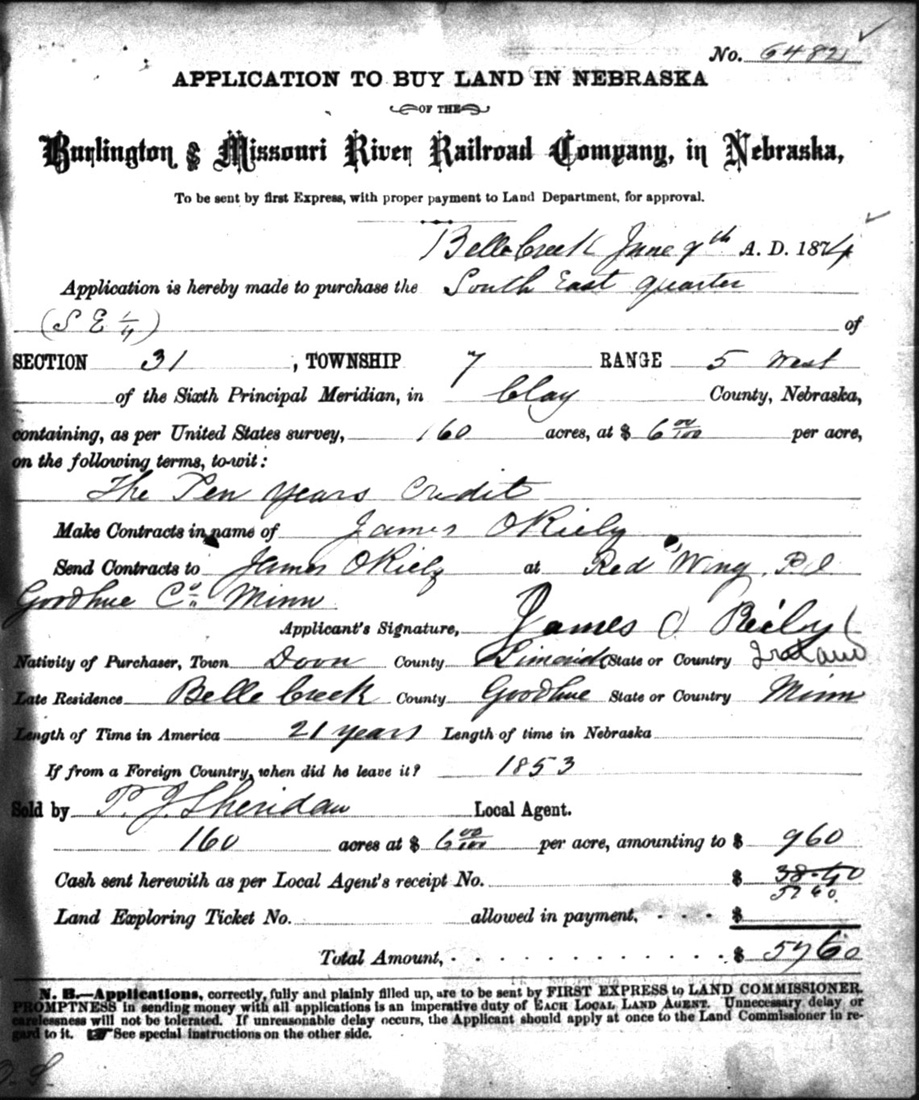 No. 6482
APPLICATION TO BUY LAND IN NEBRASKA
OF THE
Burlington & Missouri River Railroad Company, in Nebraska,
To be sent by first Express, with proper payment to Land Department, for approval.
Belle Creek June 9th A. D. 1874
Application is hereby made to purchase the South East quarter
(S E 1/4) of
SECTION 31, TOWNSHIP 7 RANGE 5 West
of the Sixth Principal Meridian, in Clay County, Nebraska,
containing, as per United States survey, 160 acres, at $ 6 00/100 per acre,
on the following terms, to-wit:
The Ten Years Credit
Make Contracts in name of James O Riely
Send Contracts to James O Riely at Red Wing, P.O
Goodhue Co Minn
Applicant's Signature, James O Reily
Nativity of Purchaser, Town Doon County Limerick State or Country Ireland
Late Residence Belle Creek County Goodhue State or Country Minn
Length of Time in America 21 years Length of time in Nebraska
If from a Foreign Country, when did he leave it? 1853
Sold by P. J. Sheridan Local Agent.
160 acres at $ 6 00/100 per acre, amounting to $ 960
Cash sent herewith as per Local Agent's receipt No. $ 38.40
57 60
Land Exploring Ticket No. allowed in payment, - - - $
Total Amount, - . . . . . . . . . . $ 5760
N. B.—Applications, correctly, fully and plainly filled up, are to be sent by FIRST EXPRESS to LAND COMMISSIONER.
PROMPTNESS in sending money with all applications is an imperative duty of EACH LOCAL LAND AGENT. Unnecessary delay or
carelessness will not be tolerated. If unreasonable delay occurs, the Applicant should apply at once to the Land Commissioner in re-
gard to it. ☞ See special instructions on the other side.